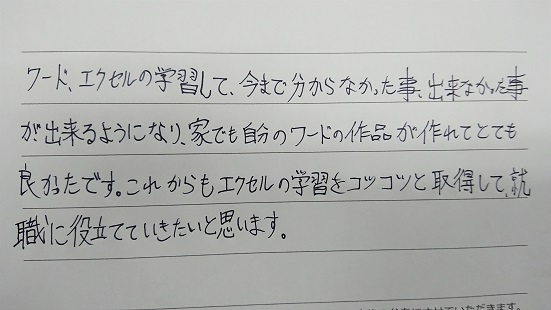 ワード、エクセルの学習して、今まで分からなかった事、出来なかった事
が出来るようになり、家でも自分のワードの作品が作れてとても
良かったです。これからもエクセルの学習をコツコツと取得して、就
職に役立てていきたいと思います。
させていただきます。